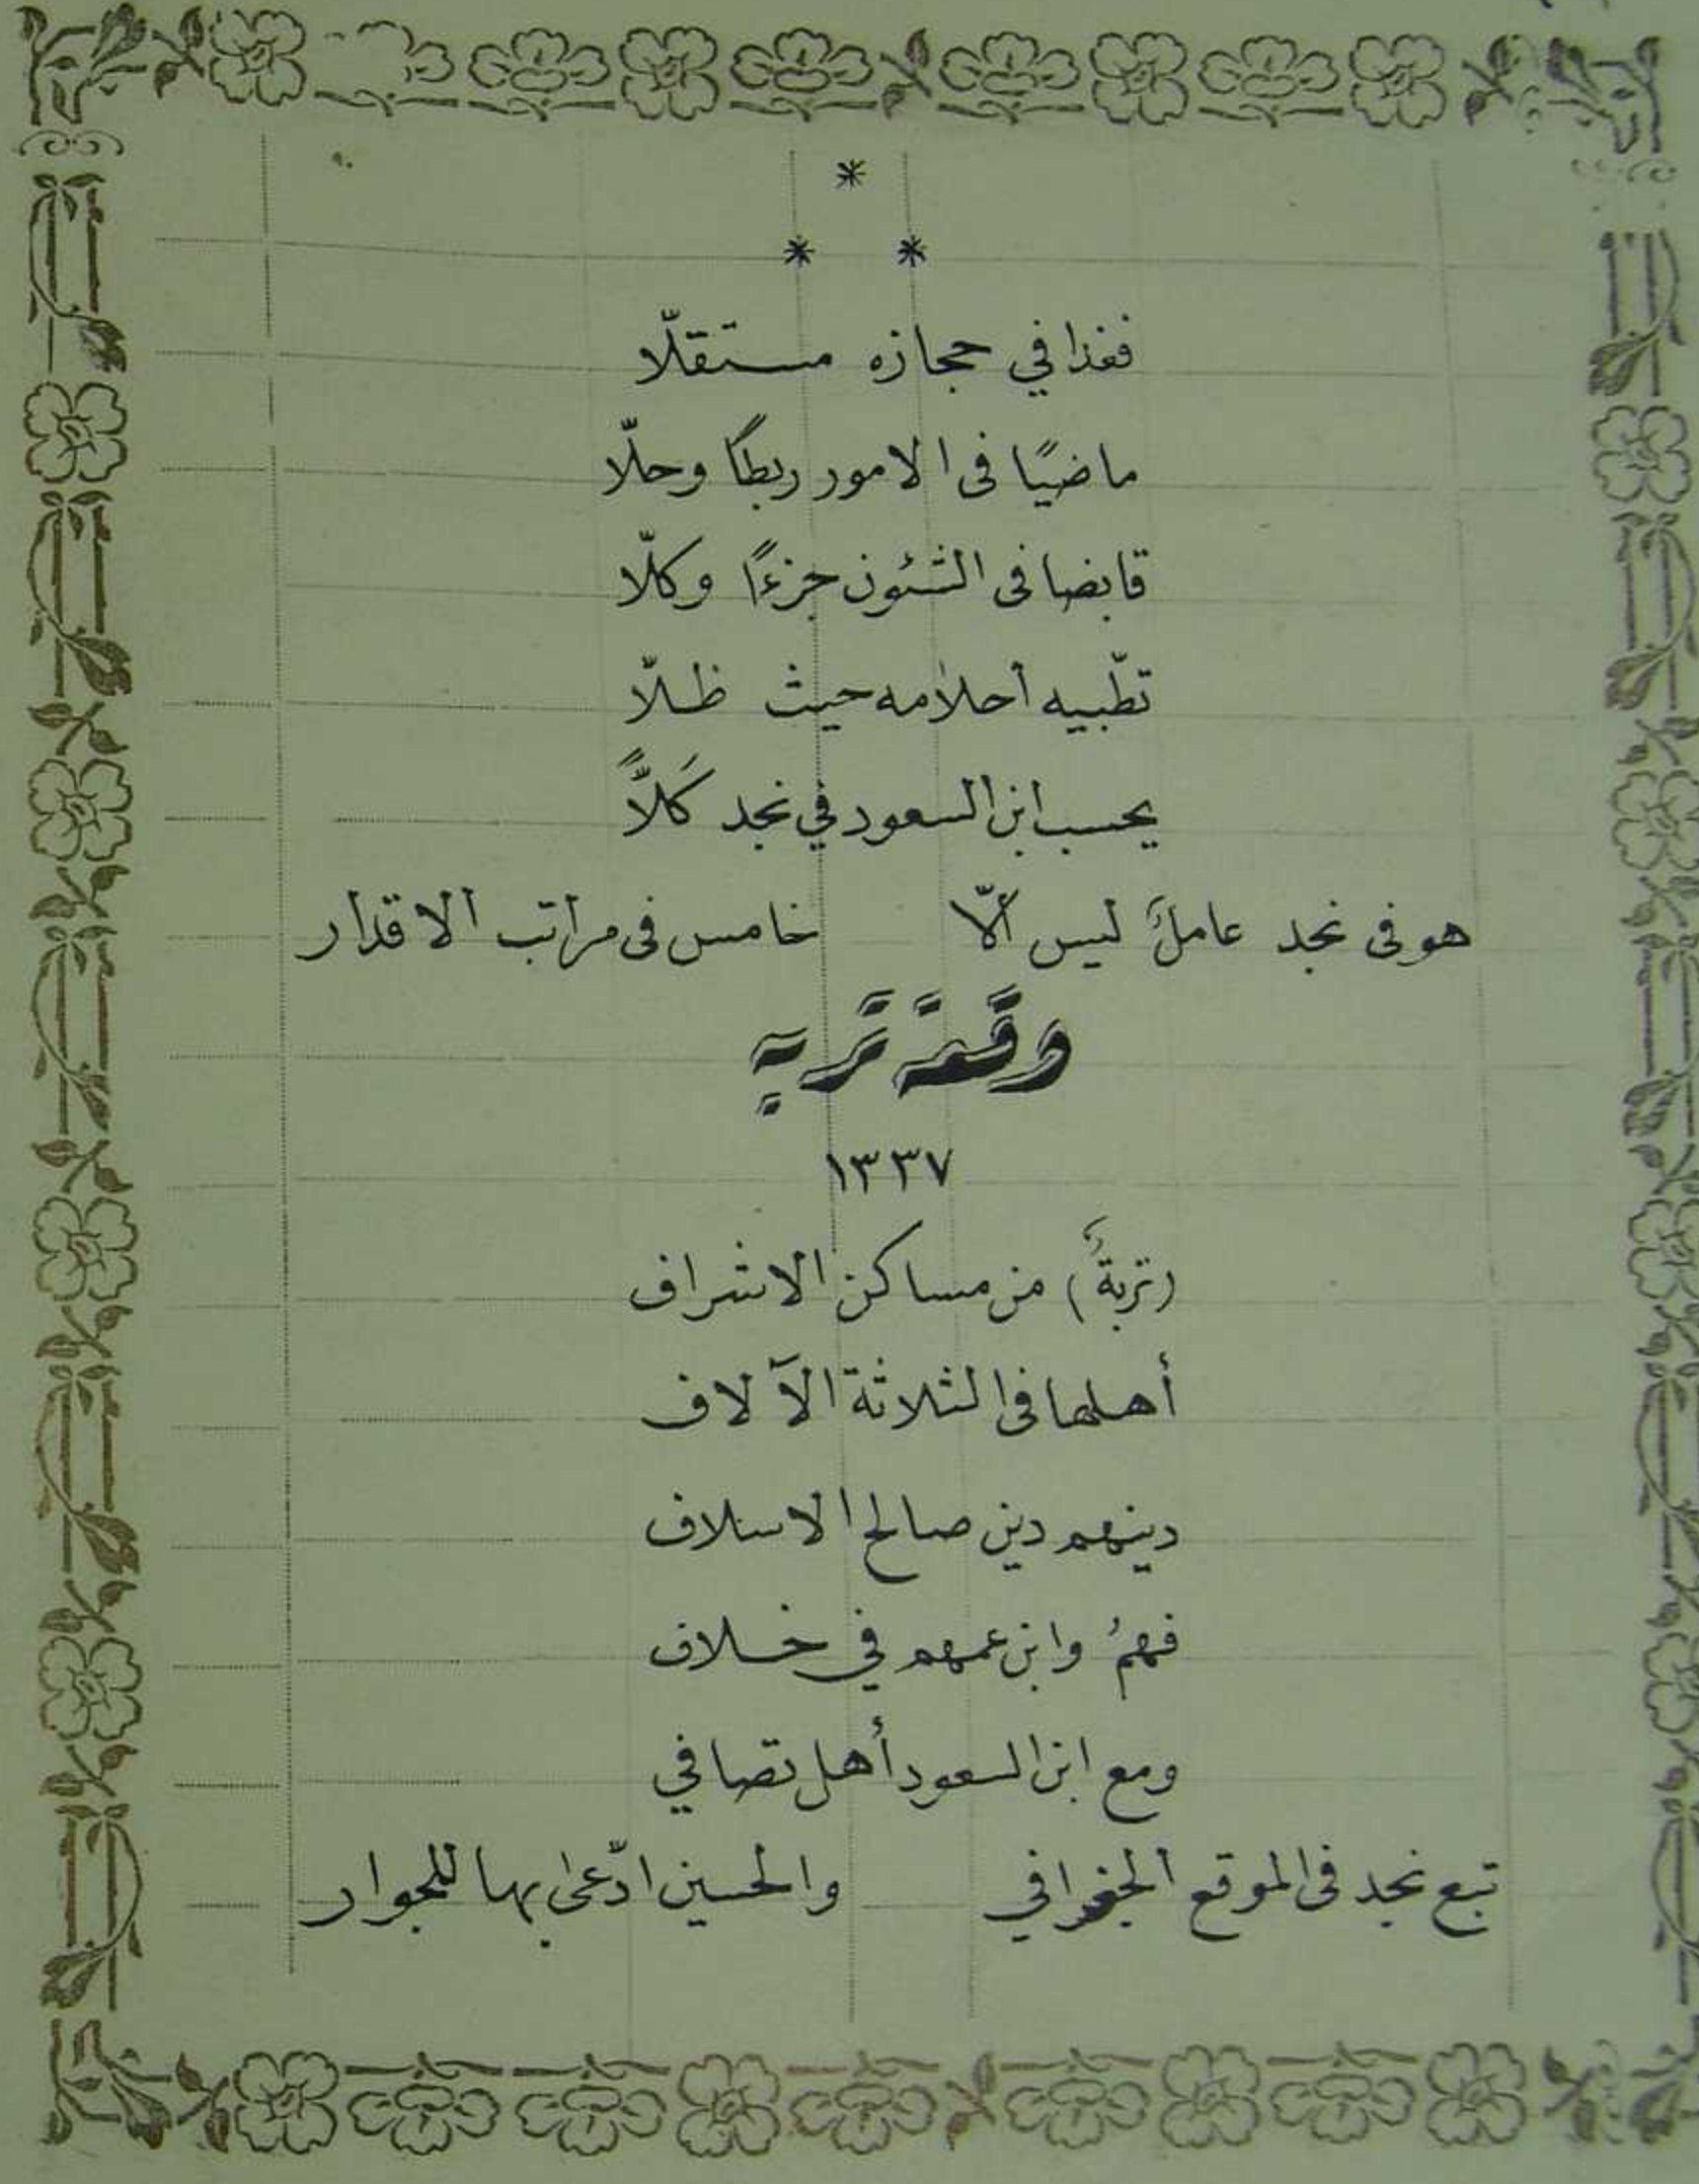 *
* *
فغذا في حجازه مستقلّا
ماضيًا فى الامور ربطًا وحلّا
قابضا فى الشئون جزءًا وكلّا
تطّبيه أحلامه حيث ظلّا
يحسب ابن السعود في نجد كَلاًّ
هو فى نجد عاملٌ ليس الّا خامس فى مراتب الاقدار
وقعة تربه
١٣٣٧
(تربةُ) من مساكن الاشراف
أهلها فى الثلاثة الآلاف
دينهم دين صالح الاسلاف
فهمُ وابن عمهم في خلاف
ومع ابن السعود أهل تصافي
تبع نجد فى الموقع الجغرافي والحسين ادّعى بها للجوار